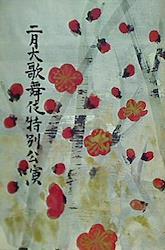 二月大歌舞伎特別公演